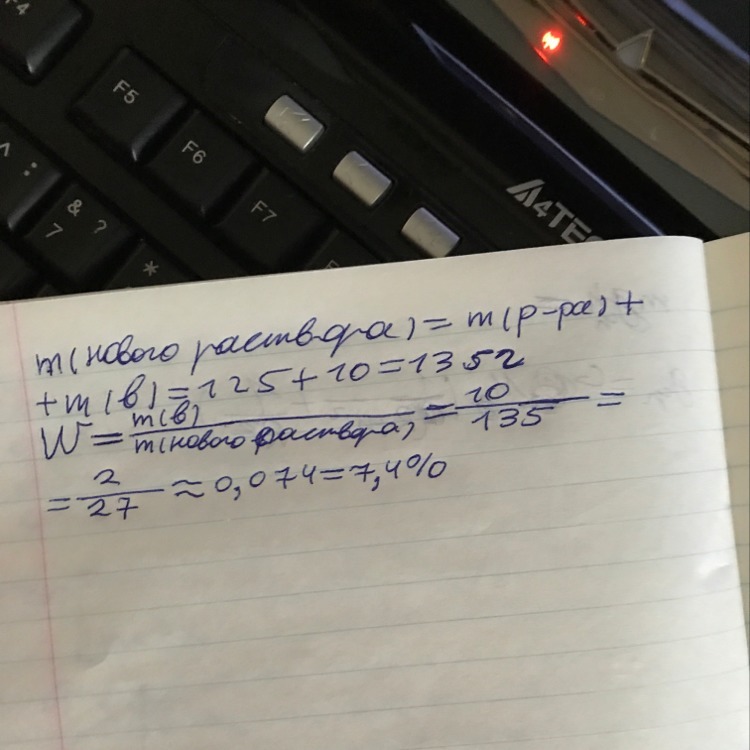 F4
F5
F6
F7
^ :
& ?
7
*
A4TEC
m(нового раствора)=m(р-ра)+
+m(в)=125+10=135г
W=m(в)/m(нового раствора)=10/135=
=2/27≈0,074=7,4%